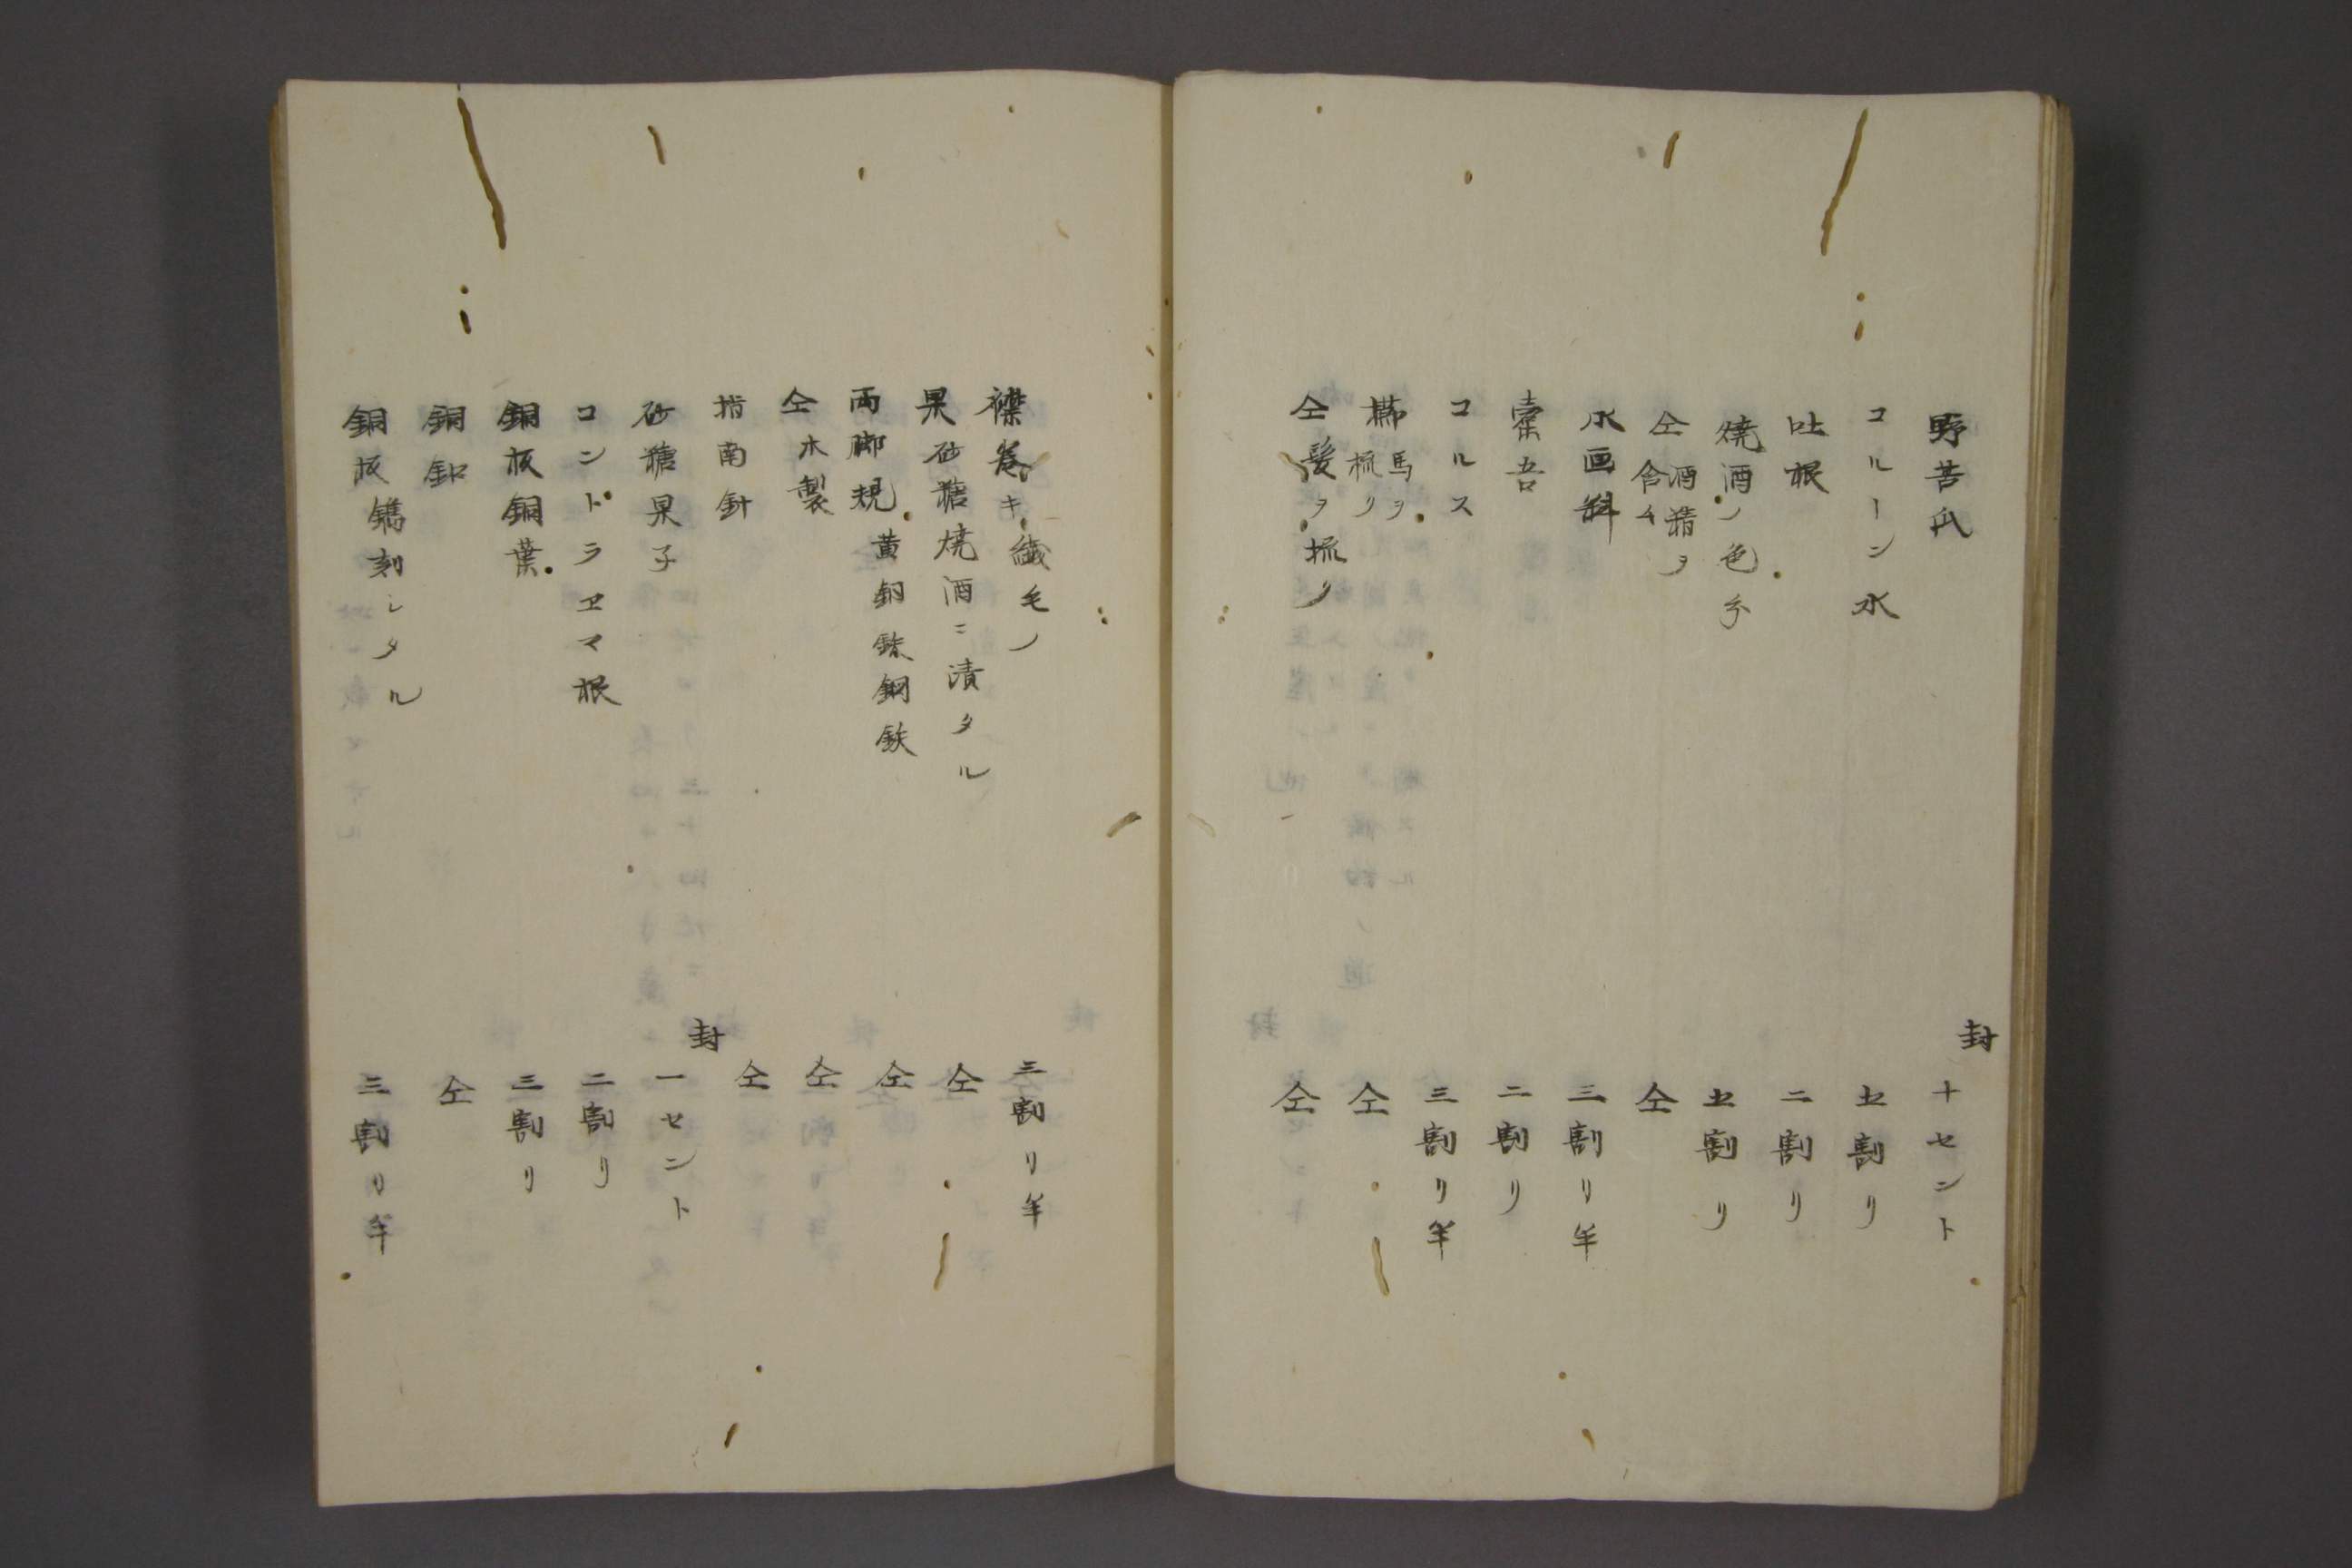 野苦瓜 封 十セント
コルーン水 七割リ
吐根 二割リ
焼酒ノ色分 七割リ
仝 酒精ヲ含ム 仝
水画料 三割リ半
橐吾 二割リ
コルス 三割リ半
櫛 馬ヲ梳リ 仝
仝 髪ヲ梳リ 仝
襟巻キ 繊毛ノ 三割リ半
果 砂糖焼酒ニ漬タル 仝
両脚規 黄銅鉄鋼鉄 仝
仝 木製 仝
指南針 仝
砂糖果子 封 一セント
コンドラヱマ根 二割リ
銅板銅葉 三割リ
銅釦 仝
銅板 鐫刻シタル 三割リ半